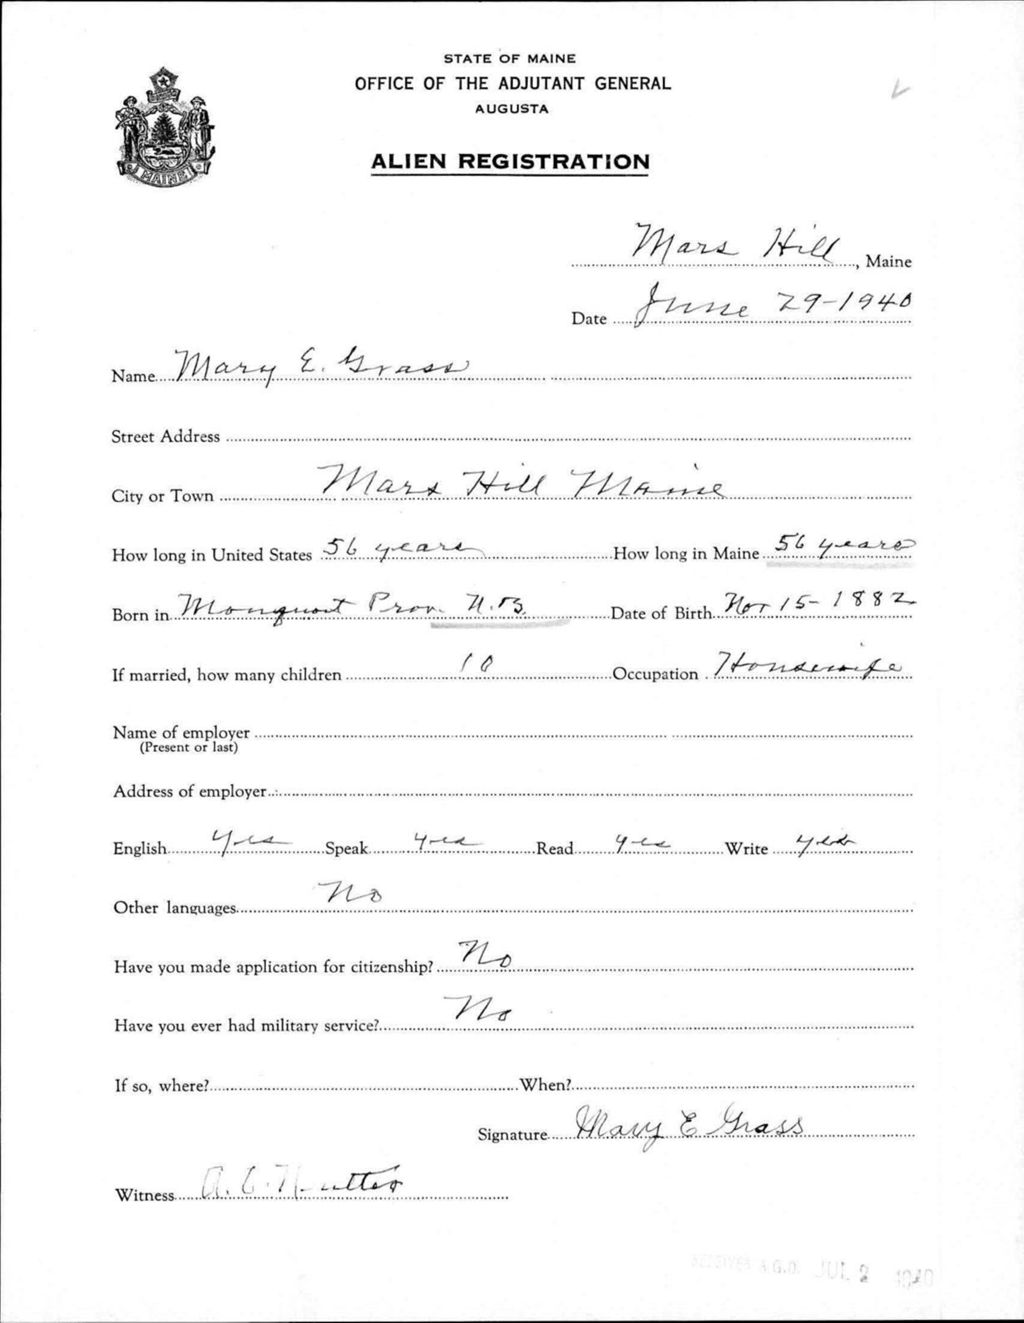 STATE OF MAINE
OFFICE OF THE ADJUTANT GENERAL
AUGUSTA
ALIEN REGISTRATION
MAINE
Mars Hill, Maine
Date June 29-1940
Name Mary E. Grass
Street Address
City or Town Mars Hill Maine
How long in United States 56 years How long in Maine 56 years
Born in Monquart Prov. N.B. Date of Birth Nov 15- 1882
If married, how many children 10 Occupation Housewife
Name of employer
(Present or last)
Address of employer
English Yes Speak yes Read yes Write yes
Other languages No
Have you made application for citizenship? No
Have you ever had military service? No
If so, where? When?
Signature Mary E Grass
Witness A. C.
RECEIVED A.G.O. JUL 2 1940